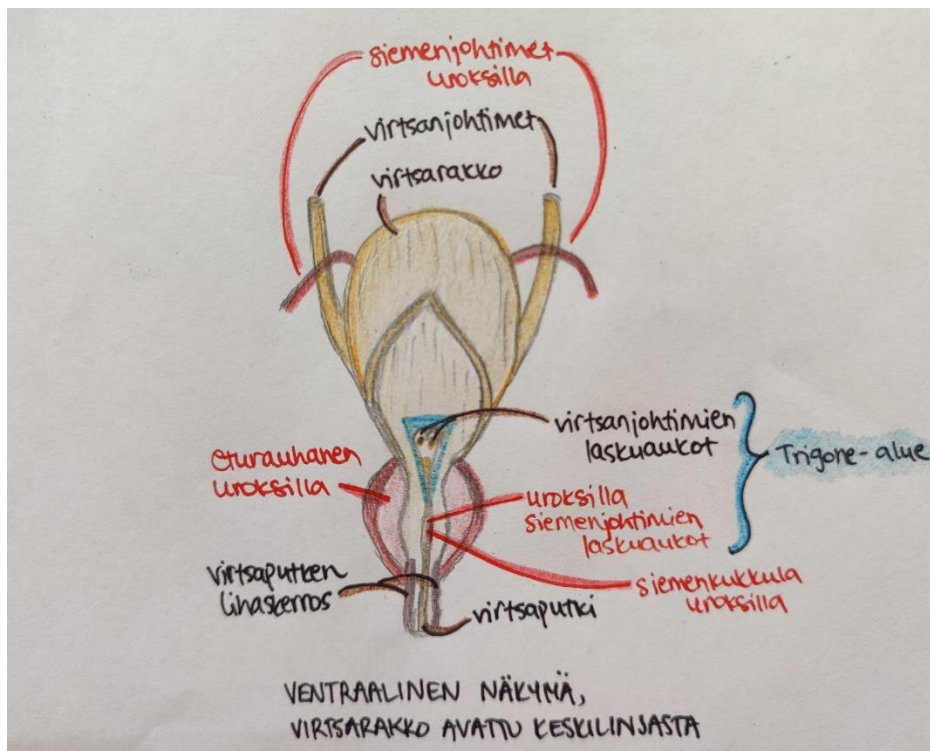 siemenjohtimet
uroksilla
virtsanjohtimet
virtsarakko
virtsanjohtimien
laskuaukot
Trigone-alue
eturauhanen
uroksilla
uroksilla
siemenjohtimien
laskuaukot
siemenkukkula
uroksilla
virtsaputken
lihaskerros
virtsaputki
VENTRAALINEN NÄKYMÄ,
VIRTSARAKKO AVATTU KESKILINJASTA